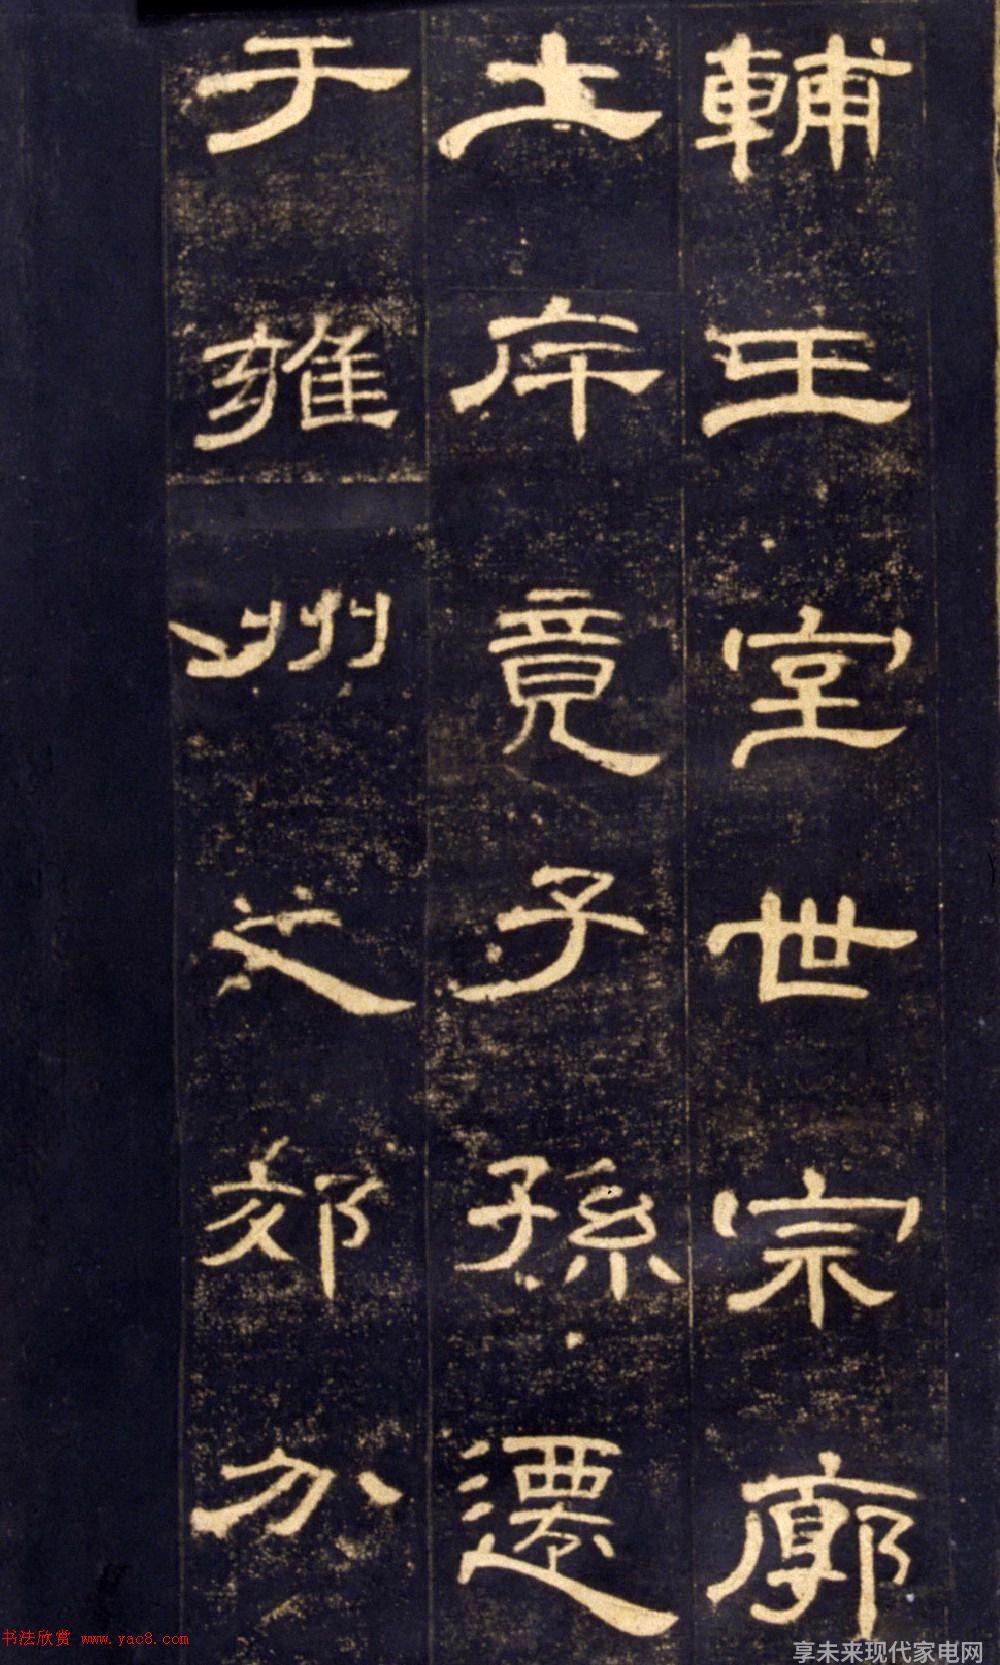 輔王室世宗廓
土斥竟子孫遷
于雍州之郊分
书法欣赏 www.yac8.com
享未来现代家电网